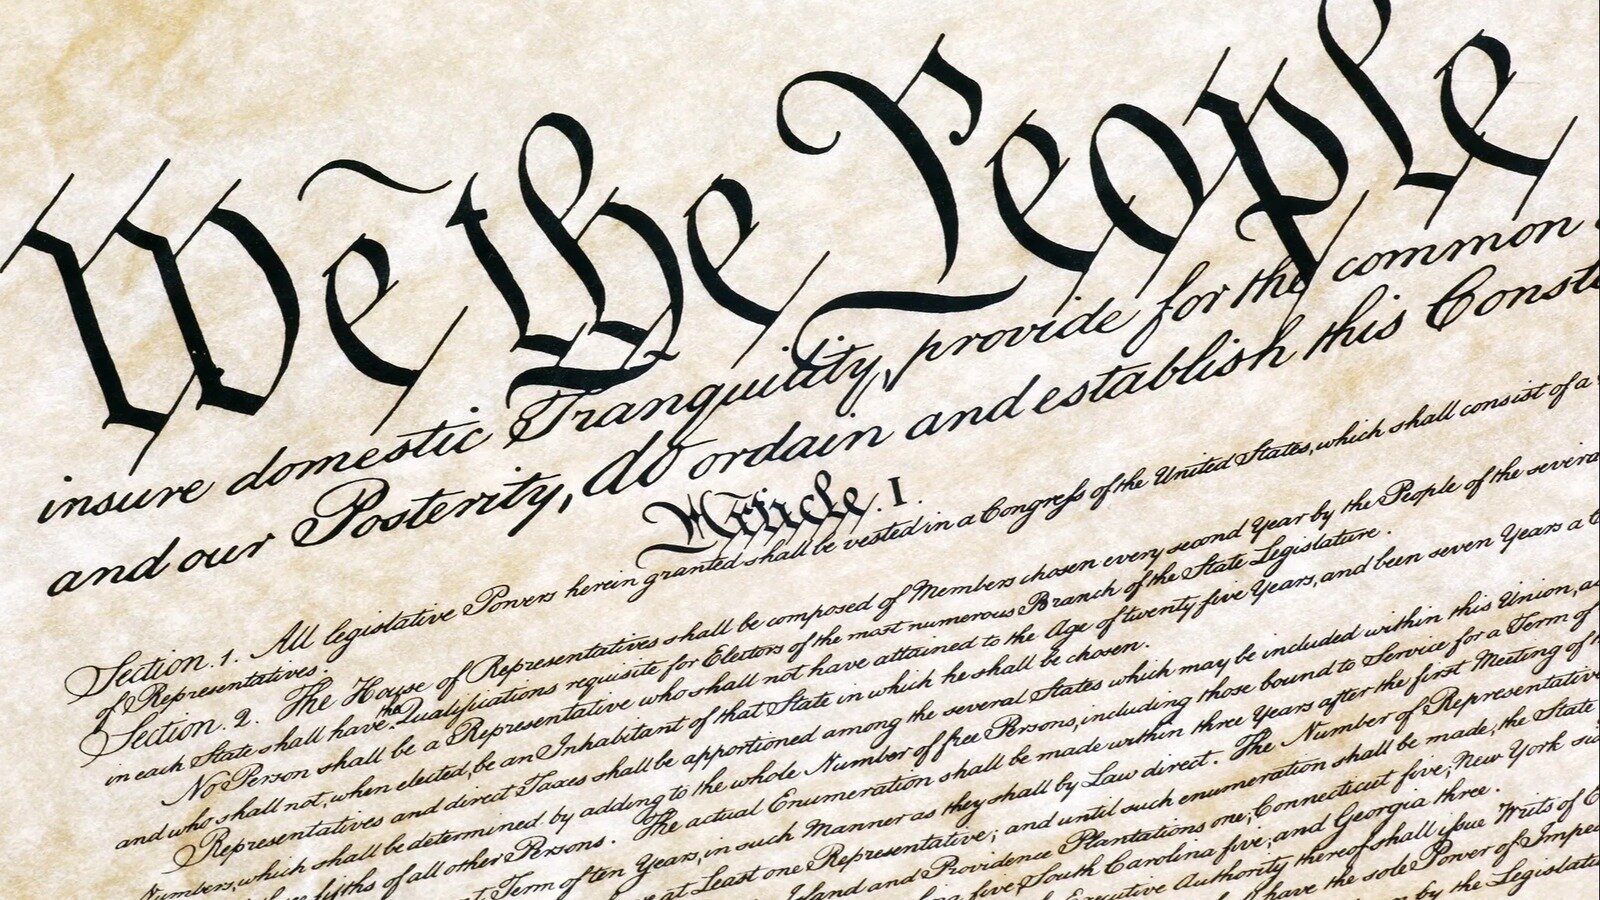 We the People
insure domestic Tranquility, provide for the common
and our Posterity, do ordain and establish this Const
Article. I.
Section. 1. All legislative Powers herein granted shall be vested in a Congress of the United States, which shall consist of a
of Representatives.
Section. 2. The House of Representatives shall be composed of Members chosen every second Year by the People of the severa
in each State shall have the Qualifications requisite for Electors of the most numerous Branch of the State Legislature.
No Person shall be a Representative who shall not have attained to the Age of twenty five Years, and been seven Years a
and who shall not, when elected, be an Inhabitant of that State in which he shall be chosen.
Representatives and direct Taxes shall be apportioned among the several States which may be included within this Union, ac
Numbers, which shall be determined by adding to the whole Number of free Persons, including those bound to Service for a Term of
fifths of all other Persons. The actual Enumeration shall be made within three Years after the first Meeting of
Term of ten Years, in such Manner as they shall by Law direct. The Number of Representative
at Least one Representative; and until such enumeration shall be made, the State
Island and Providence Plantations one, Connecticut five, New York six
five, South Carolina five, and Georgia three.
Executive Authority thereof shall issue Writs of
have the sole Power of Impe
by the Legislatu